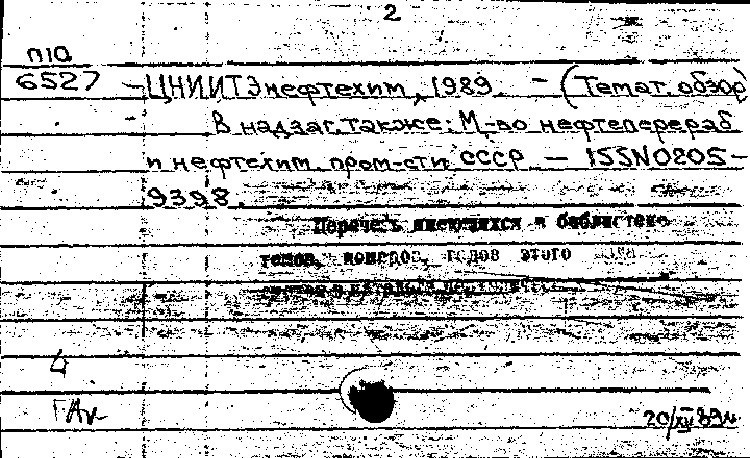 2
П10
6527 - ЦНИИТЭнефтехим, 1989. - (Темат. обзор)
- В надзаг. также: М-во нефтеперераб
и нефтехим. пром-сти СССР. - ISSN0205-
9398.
Перечень имеющихся в библиотеке
томов, номеров, годов этого
4
20/XII 89